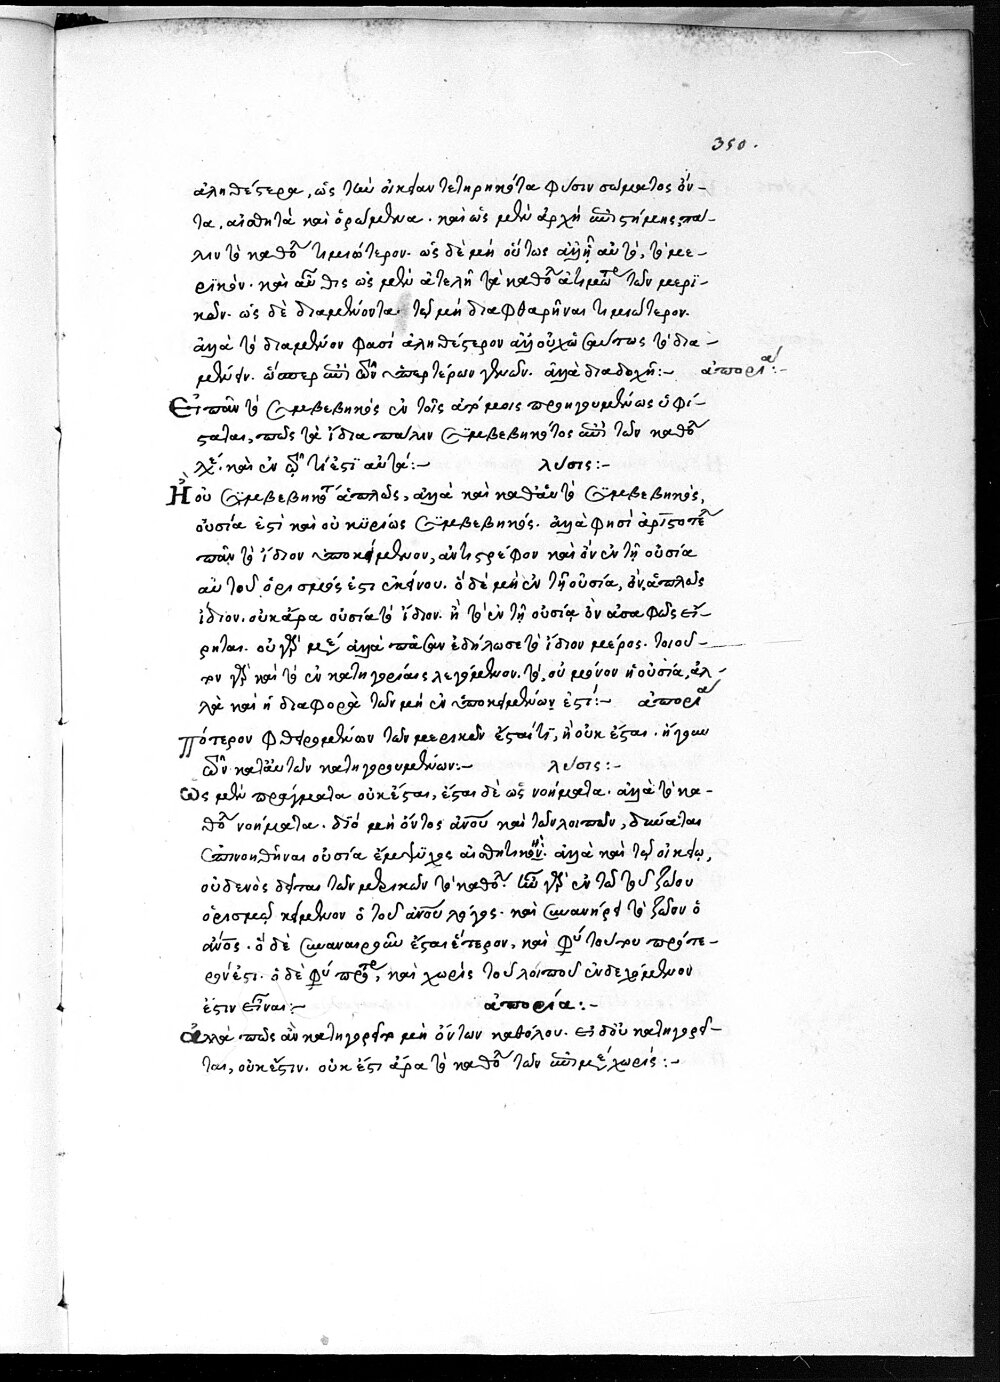 350.
ἀληθέστερα, ὡς τὴν οἰκείαν τετηρηκότα φύσιν σώματος ὄν-
τα, αἰσθητὰ καὶ ὁρώμενα. καὶ ὡς μὲν ἀρχὴ ἐπιστήμης πά-
λιν τὸ καθόλου τιμιώτερον. ὡς δὲ μὴ οὕτως ἀλλ' αὐτὸ, τὸ με-
ρικόν. καὶ αὖθις ὡς μὲν ἀτελῆ τὰ καθόλου τῶν μερι-
κῶν. ὡς δὲ διαμένοντα τῷ μὴ διαφθαρῆναι τιμιώτερον.
ἀλλὰ τὸ διαμένον φασὶ ἀληθέστερον ἀλλ' οὐχὶ οὕτως τὸ δια-
μένειν. ὥσπερ ἐπὶ τῶν ὑπερτέρων γενῶν. ἀλλὰ διαδοχῇ:- ἀπορία:-
Εἰ πᾶν τὸ συμβεβηκὸς ἐν τοῖς ἀτόμοις προηγουμένως ὑφί-
σταται, πῶς τὰ ἴδια πάλιν συμβεβηκότος ἐπὶ τῶν καθόλου
καὶ ἐν τῷ τί ἐστι αὐτά:- λύσις:-
Ἢ οὐ συμβεβηκὸς ἁπλῶς, ἀλλὰ καὶ καθ' αὑτὸ συμβεβηκός,
οὐσία ἐστὶ καὶ οὐ κυρίως συμβεβηκός. ἀλλὰ φησὶ ἀριστοτέλης
πᾶν τὸ ἴδιον ὑποκείμενον, ἀντιστρέφον καὶ ὂν ἐν τῇ οὐσία
αὐτοῦ ὁρισμός ἐστι ἐκείνου. ὃ δὲ μὴ ἐν τῇ οὐσία, ὂν, ἁπλῶς
ἴδιον. οὐκ ἄρα οὐσία τὸ ἴδιον. ἢ τὸ ἐν τῇ οὐσίᾳ ὂν ἀσαφῶς εἴ-
ρηται. οὐ γὰρ ἀλλὰ πᾶσαν ἐδήλωσε τὸ ἴδιον μέρος. τοιοῦ-
τον γὰρ καὶ τὸ ἐν κατηγορίαις λεγόμενον. τὸ, οὐ μόνον ἡ οὐσία, ἀλ-
λὰ καὶ ἡ διαφορὰ τῶν μὴ ἐν ὑποκειμένῳ ἐστί:- ἀπορία
πότερον φθειρομένων τῶν μερικῶν ἔσται τι, ἢ οὐκ ἔσται. ἤγουν
τῶν κατ' αὐτῶν κατηγορουμένων:- λύσις:-
Ὡς μὲν πράγματα οὐκ ἔσται, ἔσται δὲ ὡς νοήματα. ἀλλὰ τὸ κα-
θόλου νοήματα. διὸ μὴ ὄντος ἀνου καὶ τῶν λοιπῶν, δύναται
ἐπινοηθῆναι οὐσία ἔμψυχος αἰσθητική. ἀλλὰ καὶ τῷ οἰκείῳ,
οὐδενὸς δεῖται τῶν μερικῶν τὸ καθόλου. γὰρ ἐν τῷ τοῦ ζώου
ὁρισμῷ κείμενον ὁ τοῦ ἀνου λόγος. καὶ συνανῄρει τὸ ζῶον ὁ
ἀνος. ὃ δὲ συναναιροῦν ἔσται ὕστερον, καὶ φύσει τούτου πρότε-
ρόν ἐστι. ὁ δὲ φύσει πρότερον, καὶ χωρὶς τοῦ λοιποῦ ἐνδεχόμενον
ἐστιν εἶναι:- ἀπορία:-
Ἀλλὰ πῶς ἂν κατηγορεῖτο μὴ ὄντων καθόλου. εἰ δ' οὐ κατηγορεῖ-
ται, οὐκ ἔστιν. οὐκ ἔστι ἄρα τὸ καθόλου τῶν ἐπὶ μέρους χωρίς:-